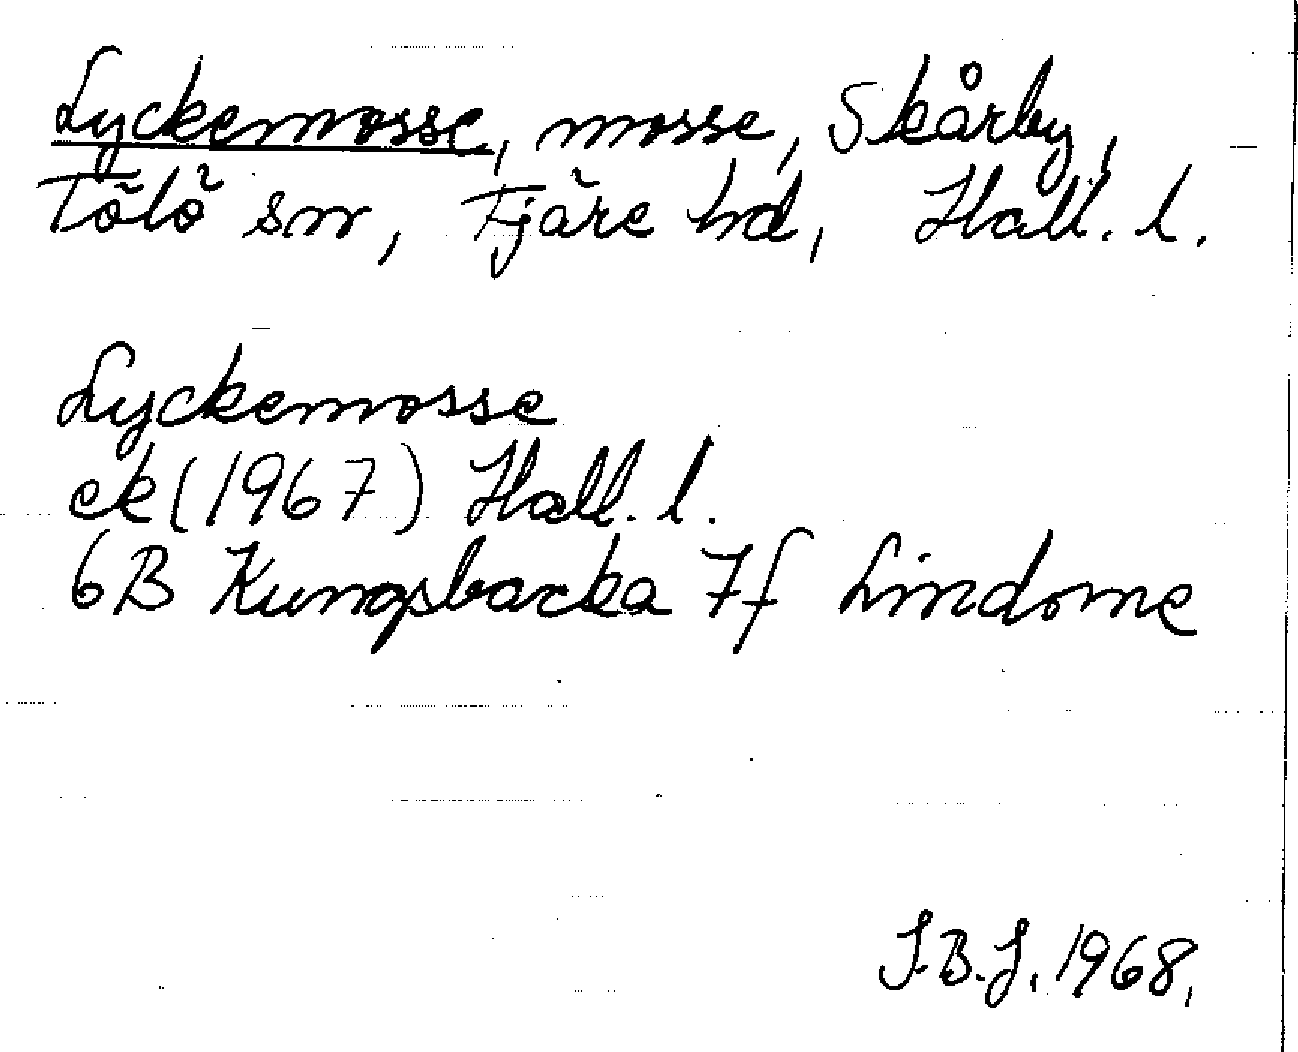 Lyckemosse, mosse, Skårby,
Tölö sn, Fjäre hd, Hall. l.
Lyckemosse
ek (1967) Hall. l.
6B Kungsbacka 7f Lindome
I.B.J. 1968.